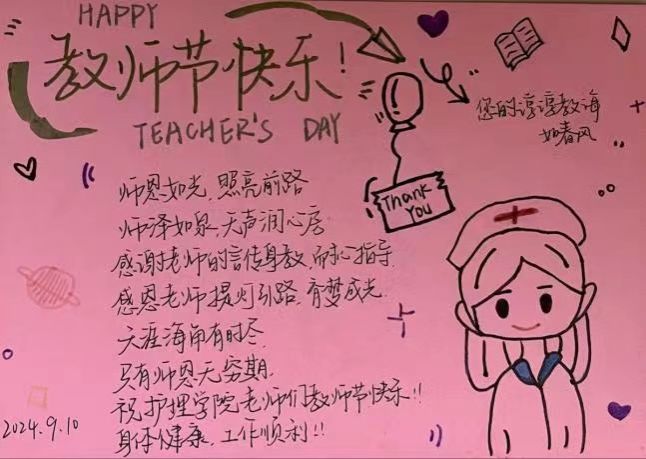 HAPPY
教师节快乐!
TEACHER'S DAY
您的谆谆教诲
如春风
Thank
You
师恩如光,照亮前路
师泽如泉,无声润心房
感谢老师的言传身教,耐心指导.
感恩老师提灯引路,育梦成光.
天涯海角有时尽
只有师恩无穷期.
祝护理学院老师们教师节快乐!!
身体健康,工作顺利!!
2024.9.10